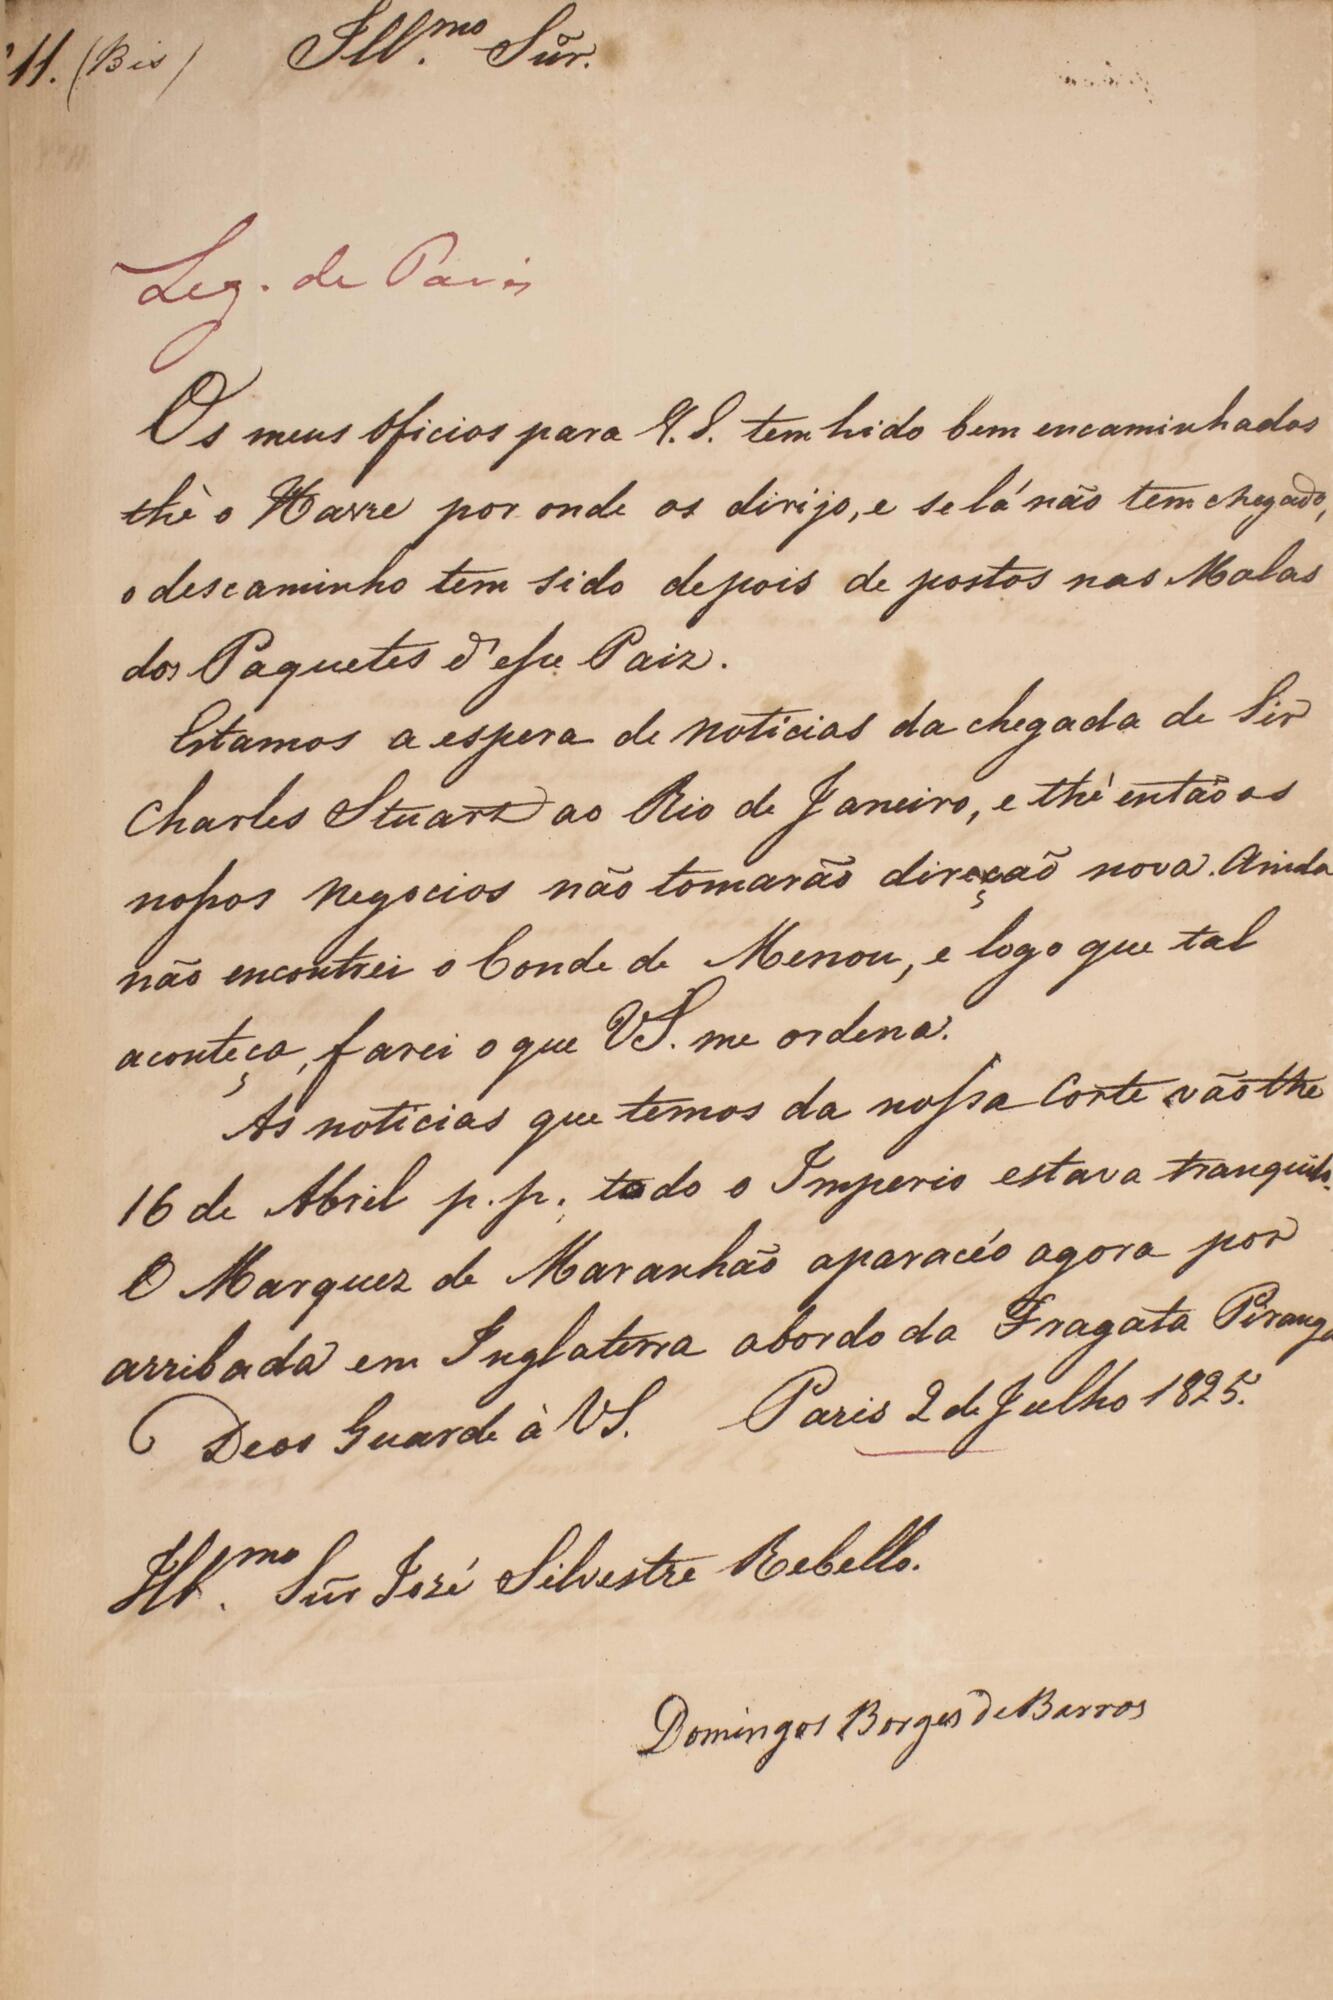 11. (Bis) Ill.mo Sñr.
Leg. de Paris
Os meus officios para V.S. tem hido bem encaminhados
thè o Havre por onde os dirijo, e se lá não tem chegado,
o descaminho tem sido depois de postos nas Malas
dos Paquetes d'esse Paiz.
Estamos a espera de noticias da chegada de Sir
Charles Stuart ao Rio de Janeiro, e thè então os
nossos negocios não tomarão direcção nova. Ainda
não encontrei o Conde de Menou, e logo que tal
aconteça, farei o que VS. me ordena.
As noticias que temos da nossa Corte vão the
16 de Abril p.p. todo o Imperio estava tranquilo.
O Marquez de Maranhão aparacéo agora por
arribada em Inglaterra abordo da Fragata Piranga
Deos Guarde à VS. Paris 2 de Julho 1825.
Ill.mo Sñr José Silvestre Rebello.
Domingos Borges de Barros